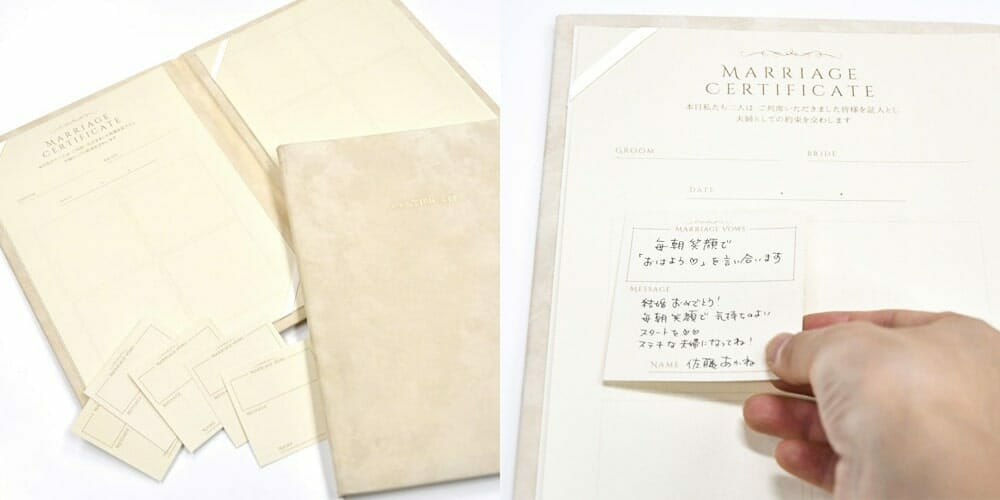 MARRIAGE
CERTIFICATE
MARRIAGE VOWS
MESSAGE
NAME
MESSAGE
MARRIAGE
CERTIFICATE
本日私たち二人は ご列席いただきました皆様を証人とし
夫婦としての約束を交わします
GROOM
BRIDE
DATE . .
MARRIAGE VOWS
毎朝 笑顔で
「おはよう♡」を言い合います
MESSAGE
結婚 おめでとう!
毎朝 笑顔で 気持ちのよい
スタートを♡♡
ステキな夫婦になってね!
NAME 佐藤 あかね